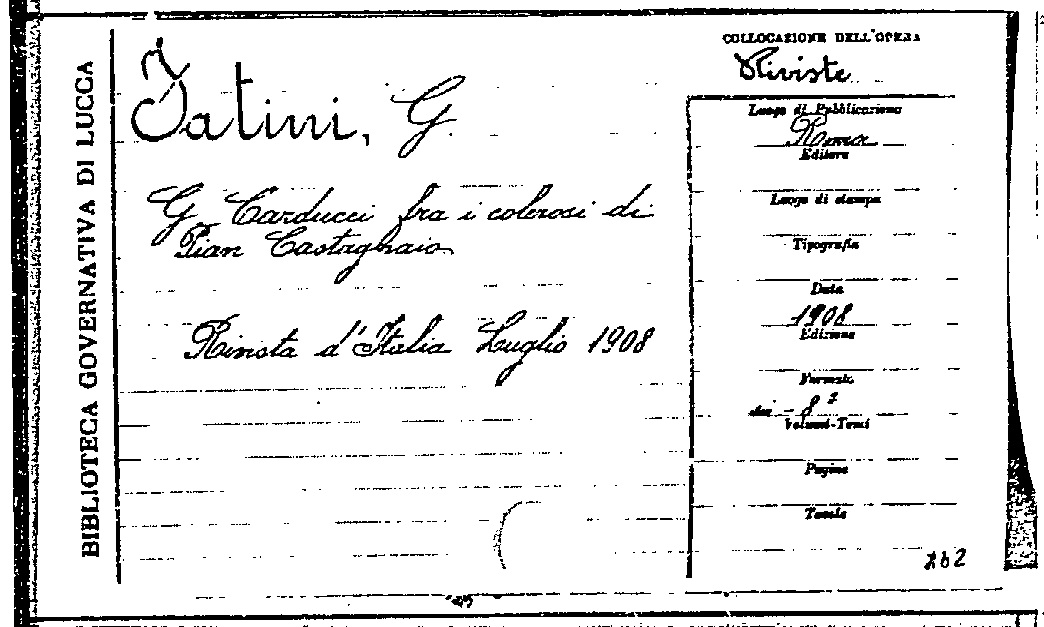 BIBLIOTECA GOVERNATIVA DI LUCCA
Fatini, G.
G. Carducci fra i colerosi di
Pian Castagnaio
Rivista d'Italia Luglio 1908
COLLOCAZIONE DELL'OPERA
Riviste
Luogo di Pubblicazione
Roma
Editore
Luogo di stampa
Tipografia
Data
1908
Edizione
Formato
in - 8°
Volumi-Tomi
Pagine
Tavole
262